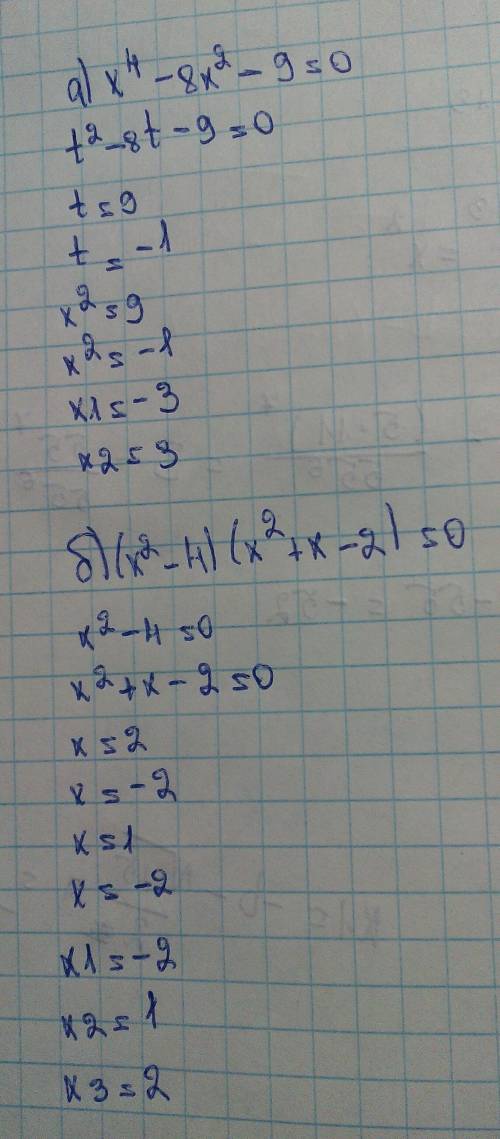 а) x⁴ - 8x² - 9 = 0
t² - 8t - 9 = 0
t = 9
t = -1
x² = 9
x² = -1
x1 = -3
x2 = 3
б) (x² - 4) (x² + x - 2) = 0
x² - 4 = 0
x² + x - 2 = 0
x = 2
x = -2
x = 1
x = -2
x1 = -2
x2 = 1
x3 = 2